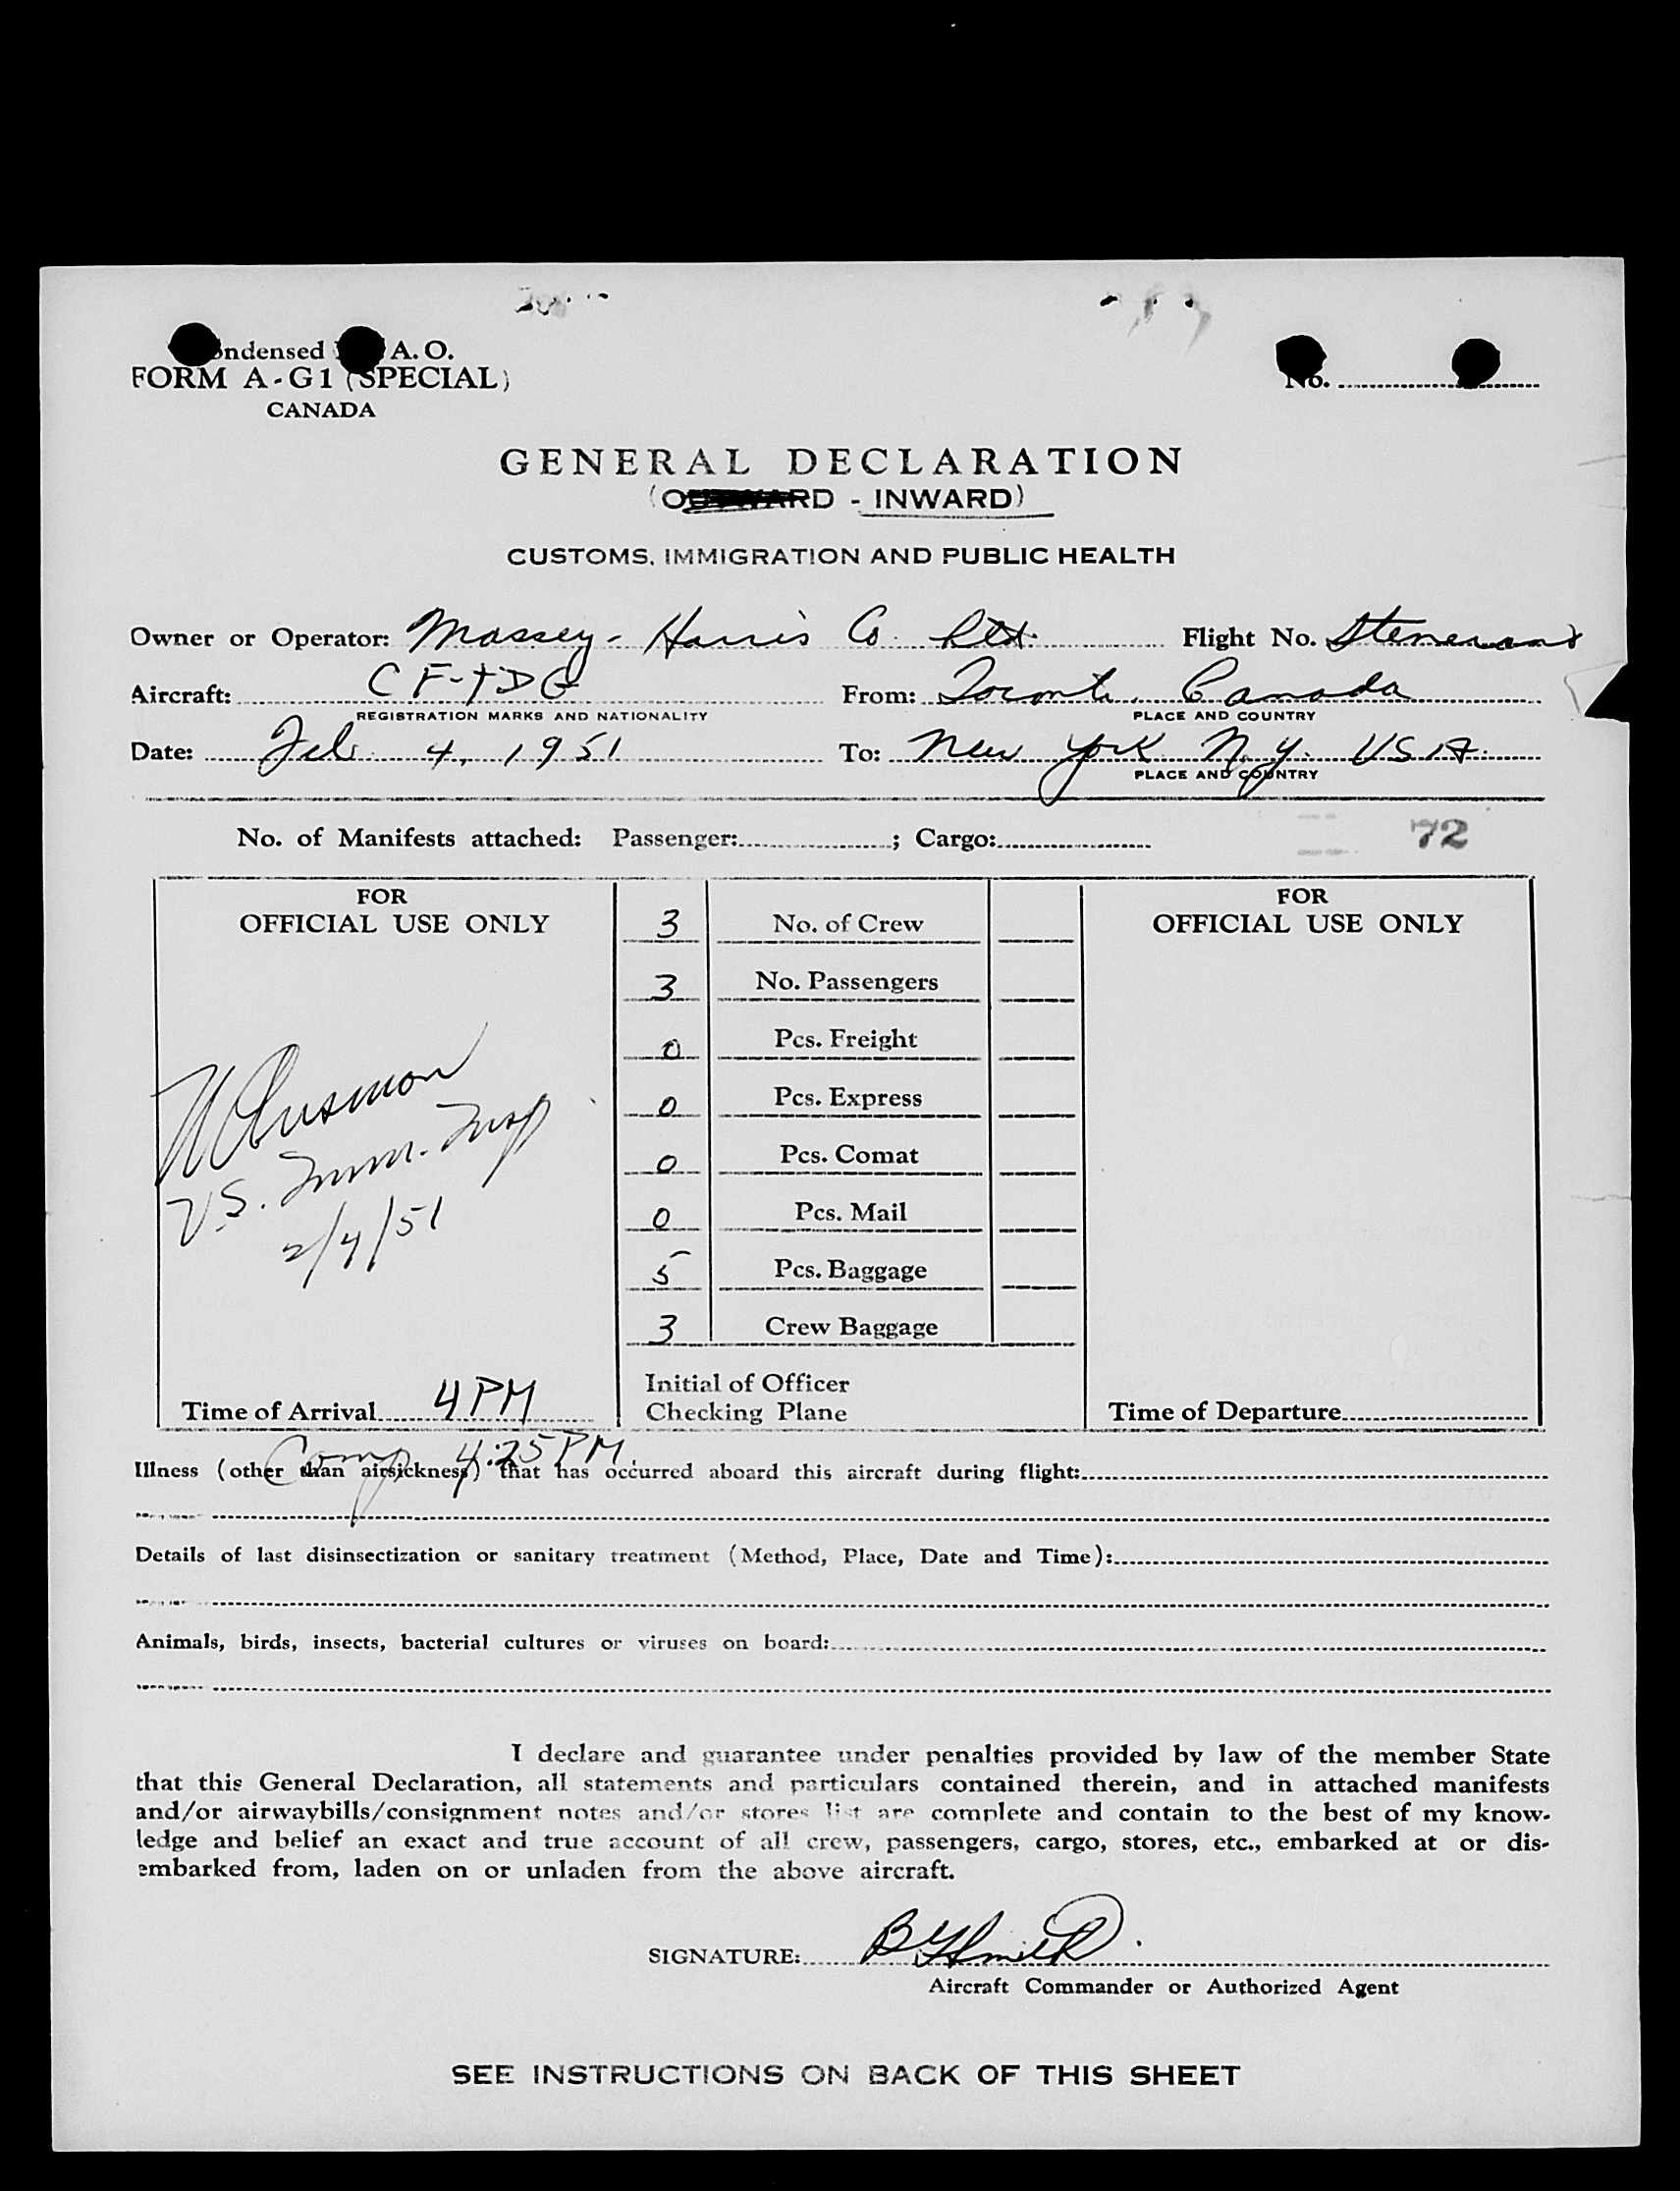 Condensed A. O. No.
FORM A-G1 (SPECIAL)
CANADA
GENERAL DECLARATION
(OUTWARD - INWARD)
CUSTOMS, IMMIGRATION AND PUBLIC HEALTH
Owner or Operator: Massey-Harris Co. Ltd. Flight No.
Aircraft: CF-TDG From: Toronto, Canada
REGISTRATION MARKS AND NATIONALITY PLACE AND COUNTRY
Date: Feb. 4, 1951 To: New York N.Y. USA.
PLACE AND COUNTRY
No. of Manifests attached: Passenger: ; Cargo: 72
FOR FOR
OFFICIAL USE ONLY OFFICIAL USE ONLY
3 No. of Crew
3 No. Passengers
0 Pcs. Freight
0 Pcs. Express
0 Pcs. Comat
0 Pcs. Mail
5 Pcs. Baggage
3 Crew Baggage
U.S. Imm. Insp
2/4/51
Initial of Officer
Time of Arrival 4 PM Checking Plane Time of Departure
Comp 4:25 PM.
Illness (other than airsickness) that has occurred aboard this aircraft during flight:
Details of last disinsectization or sanitary treatment (Method, Place, Date and Time):
Animals, birds, insects, bacterial cultures or viruses on board:
I declare and guarantee under penalties provided by law of the member State
that this General Declaration, all statements and particulars contained therein, and in attached manifests
and/or airwaybills/consignment notes and/or stores list are complete and contain to the best of my know-
ledge and belief an exact and true account of all crew, passengers, cargo, stores, etc., embarked at or dis-
embarked from, laden on or unladen from the above aircraft.
SIGNATURE:
Aircraft Commander or Authorized Agent
SEE INSTRUCTIONS ON BACK OF THIS SHEET